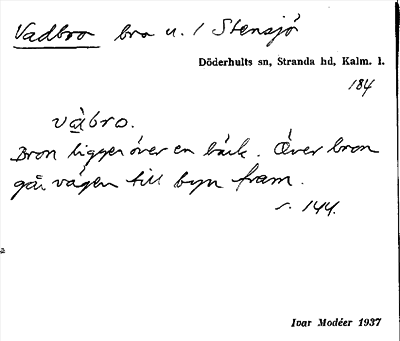 Vadbro bro u. / Stensjö
Döderhults sn, Stranda hd, Kalm. l.
184
vàbro.
Bron ligger över en bäck. Över bron
går vägen till byn fram.
s. 144.
Ivar Modéer 1937